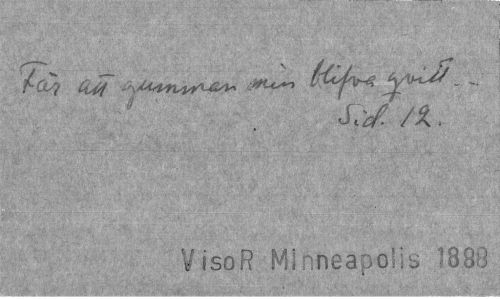 För att gumman min blifva qvitt...
Sid. 12.
VisoR Minneapolis 1888